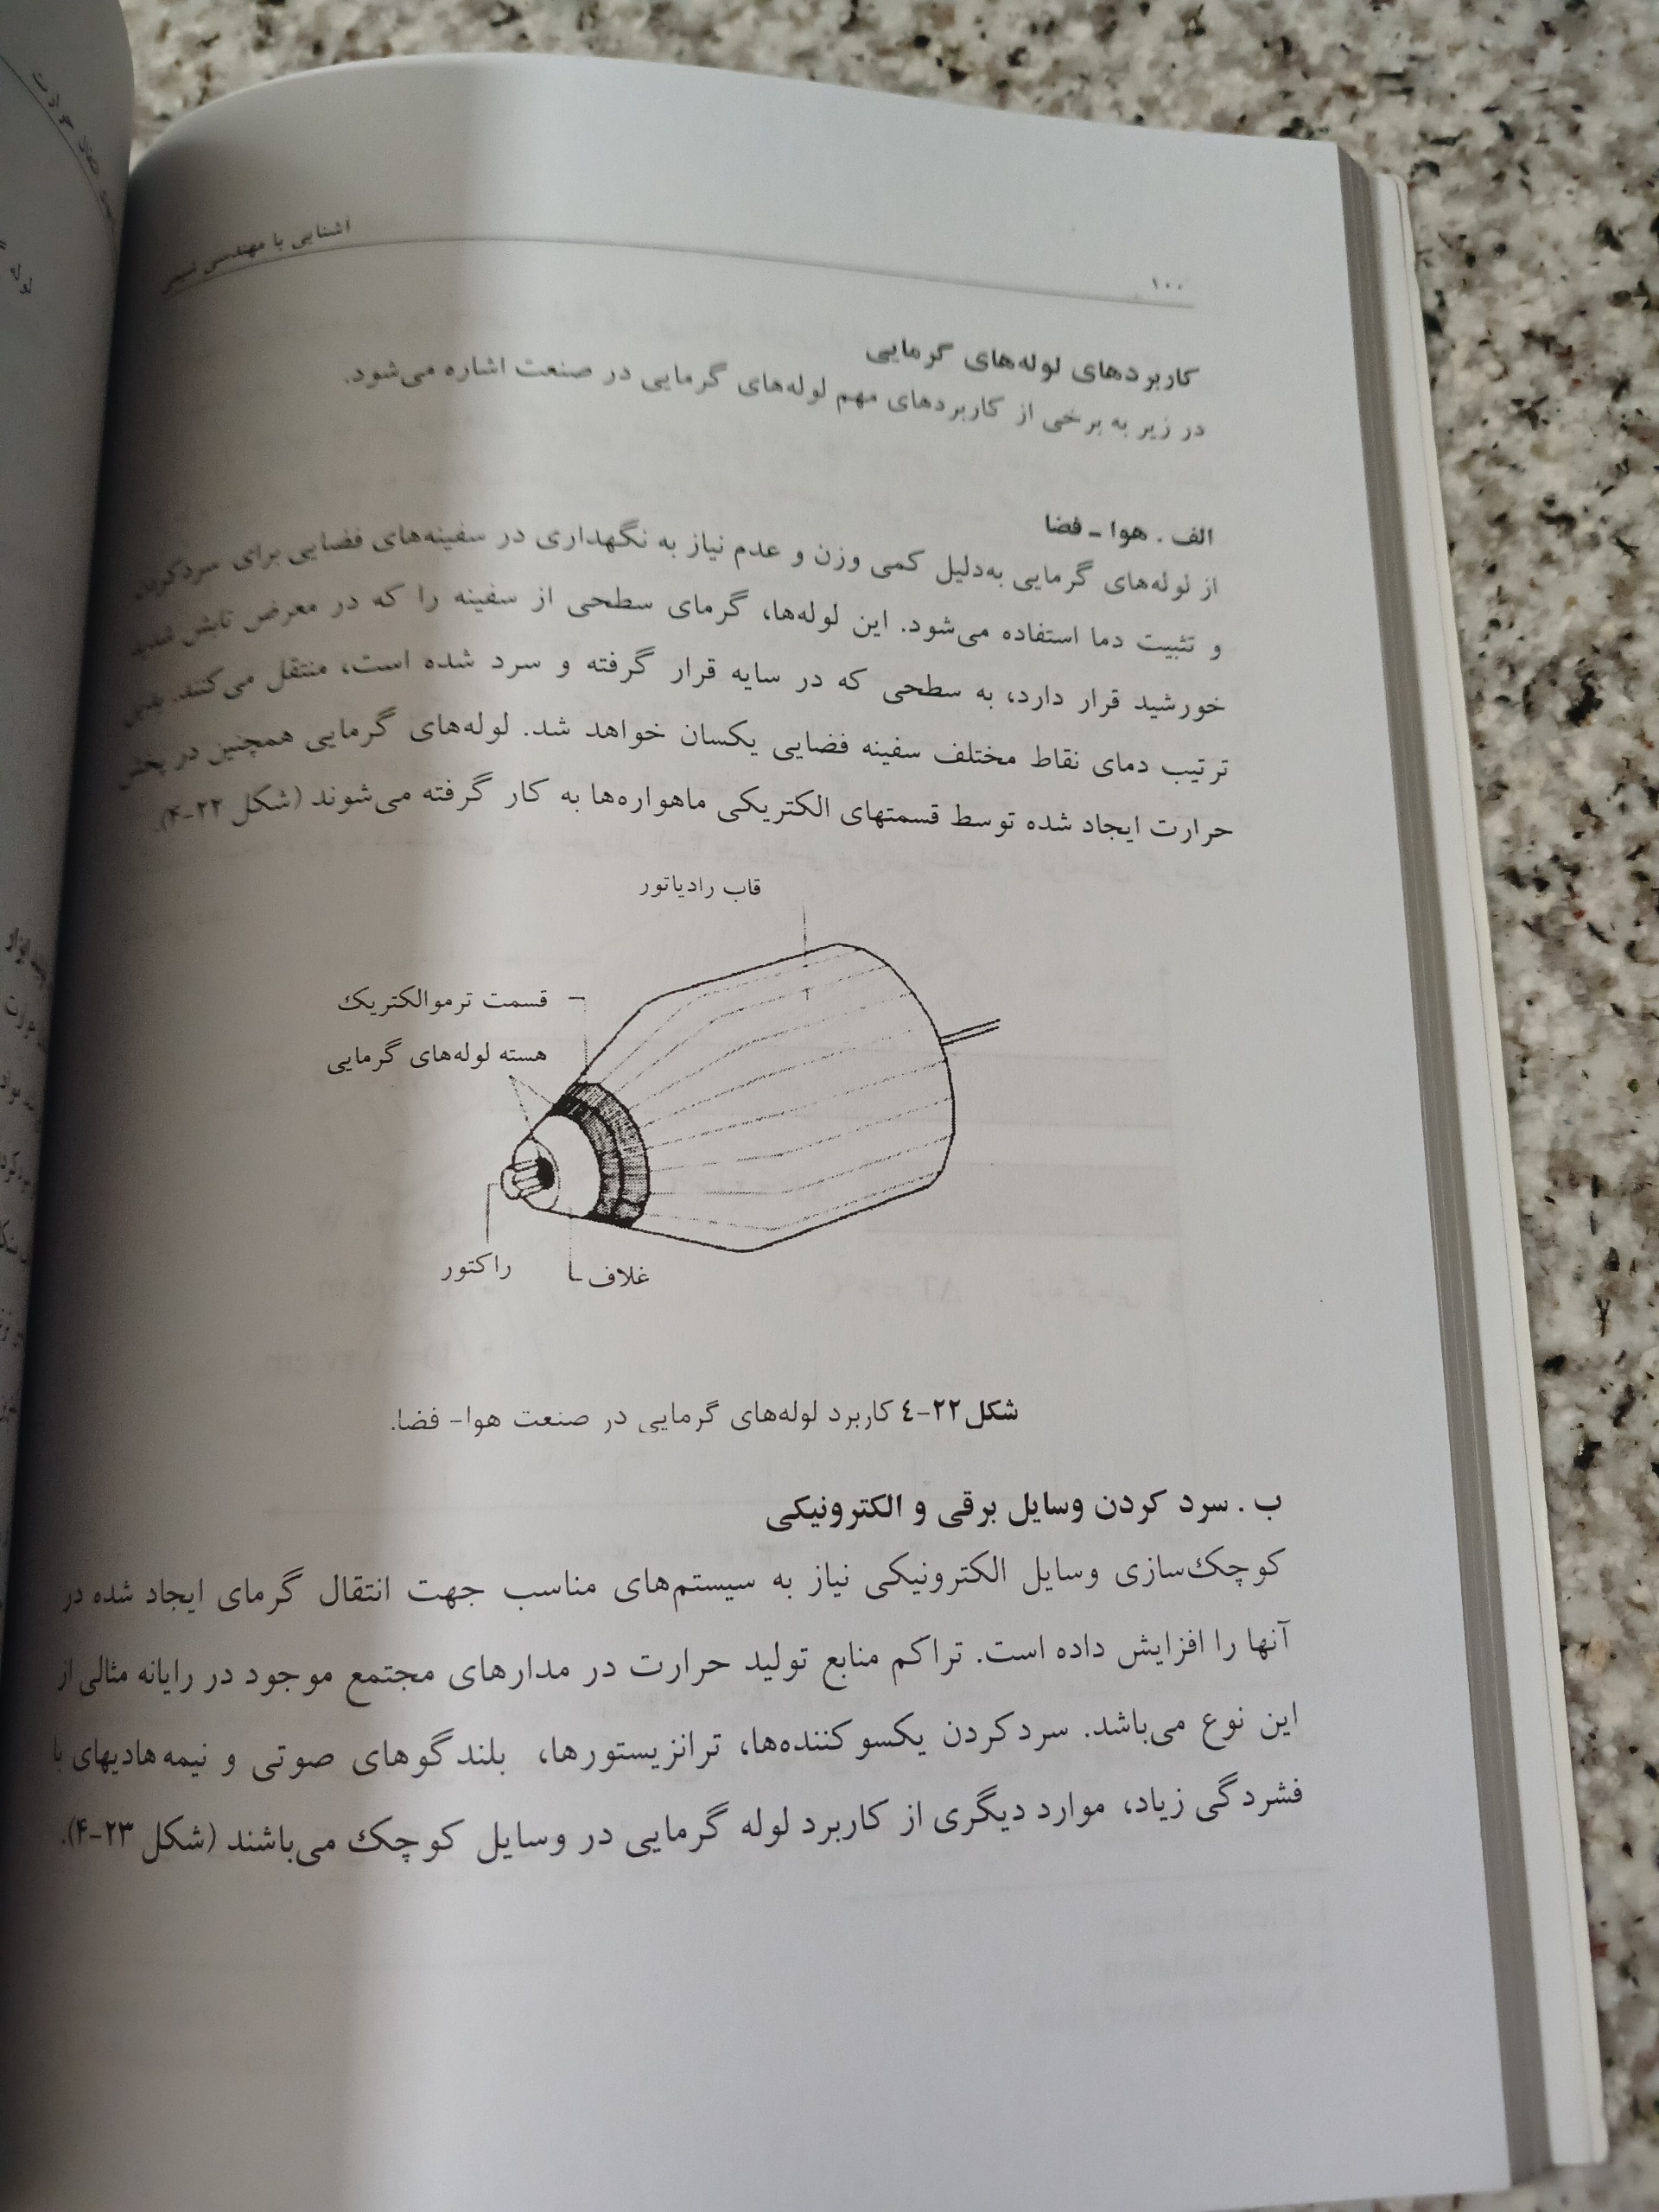 ۱۰۰
آشنایی با مهندسی شیمی
کاربردهای لوله‌های گرمایی
در زیر به برخی از کاربردهای مهم لوله‌های گرمایی در صنعت اشاره می‌شود.
الف . هوا ـ فضا
از لوله‌های گرمایی به‌دلیل کمی وزن و عدم نیاز به نگهداری در سفینه‌های فضایی برای سردکردن
و تثبیت دما استفاده می‌شود. این لوله‌ها، گرمای سطحی از سفینه را که در معرض تابش شدید
خورشید قرار دارد، به سطحی که در سایه قرار گرفته و سرد شده است، منتقل می‌کنند. بدین
ترتیب دمای نقاط مختلف سفینه فضایی یکسان خواهد شد. لوله‌های گرمایی همچنین در پخش
حرارت ایجاد شده توسط قسمتهای الکتریکی ماهواره‌ها به کار گرفته می‌شوند (شکل ۲۲-۴).
قاب رادیاتور
قسمت ترموالکتریک
هسته لوله‌های گرمایی
راکتور
غلاف
شکل۲۲-٤ کاربرد لوله‌های گرمایی در صنعت هوا- فضا.
ب . سرد کردن وسایل برقی و الکترونیکی
کوچک‌سازی وسایل الکترونیکی نیاز به سیستم‌های مناسب جهت انتقال گرمای ایجاد شده در
آنها را افزایش داده است. تراکم منابع تولید حرارت در مدارهای مجتمع موجود در رایانه مثالی از
این نوع می‌باشد. سردکردن یکسوکننده‌ها، ترانزیستورها، بلندگوهای صوتی و نیمه‌هادیهای با
فشردگی زیاد، موارد دیگری از کاربرد لوله گرمایی در وسایل کوچک می‌باشند (شکل ۲۳-۴).